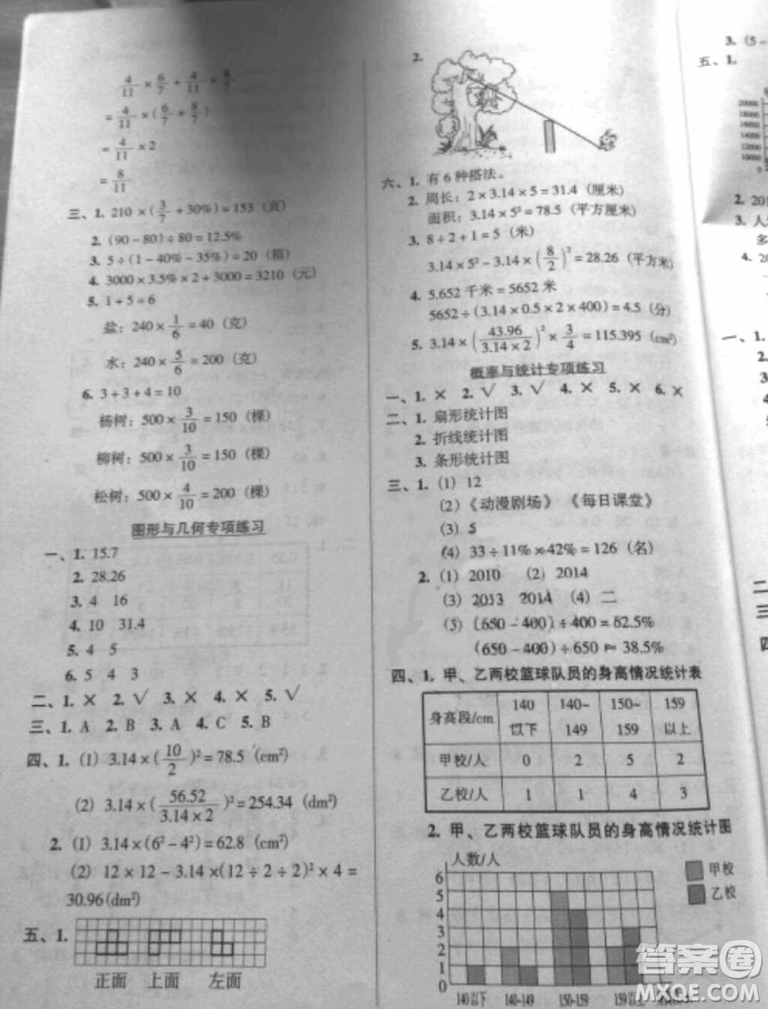 4/11 × 6/7 + 4/11 × 8/7
= 4/11 × (6/7 + 8/7)
= 4/11 × 2
= 8/11
三、1. 210 × (3/7 + 30%) = 153（页）
2. (90 - 80) ÷ 80 = 12.5%
3. 5 ÷ (1 - 40% - 35%) = 20（箱）
4. 3000 × 3.5% × 2 + 3000 = 3210（元）
5. 1 + 5 = 6
盐：240 × 1/6 = 40（克）
水：240 × 5/6 = 200（克）
6. 3 + 3 + 4 = 10
杨树：500 × 3/10 = 150（棵）
柳树：500 × 3/10 = 150（棵）
松树：500 × 4/10 = 200（棵）
图形与几何专项练习
一、1. 15.7
2. 28.26
3. 4 16
4. 10 31.4
5. 4 5
6. 5 4 3
二、1. × 2. √ 3. × 4. × 5. √
三、1. A 2. B 3. A 4. C 5. B
四、1. (1) 3.14 × (10/2)² = 78.5（cm²）
(2) 3.14 × (56.52/3.14 × 2)² = 254.34（dm²）
2. (1) 3.14 × (6² - 4²) = 62.8（cm²）
(2) 12 × 12 - 3.14 × (12 ÷ 2 ÷ 2)² × 4 =
30.96(dm²)
五、1.
正面 上面 左面
2.
六、1. 有 6 种搭法。
2. 周长：2 × 3.14 × 5 = 31.4（厘米）
面积：3.14 × 5² = 78.5（平方厘米）
3. 8 ÷ 2 + 1 = 5（米）
3.14 × 5² - 3.14 × (8/2)² = 28.26（平方米）
4. 5.652 千米 = 5652 米
5652 ÷ (3.14 × 0.5 × 2 × 400) = 4.5（分）
5. 3.14 × (43.96/3.14 × 2)² × 3/4 = 115.395（cm²）
概率与统计专项练习
一、1. × 2. √ 3. √ 4. × 5. × 6. ×
二、1. 扇形统计图
2. 折线统计图
3. 条形统计图
三、1. (1) 12
(2)《动漫剧场》《每日课堂》
(3) 5
(4) 33 ÷ 11% × 42% = 126（名）
2. (1) 2010 (2) 2014
(3) 2013 2014 (4) 二
(5) (650 - 400) ÷ 400 = 62.5%
(650 - 400) ÷ 650 ≈ 38.5%
四、1. 甲、乙两校篮球队员的身高情况统计表
身高段/cm 140以下 140~149 150~159 159以上
甲校/人 0 2 5 2
乙校/人 1 1 4 3
2. 甲、乙两校篮球队员的身高情况统计图
人数/人
甲校
乙校
6
5
4
3
2
1
0
140以下 140-149 150-159 159以上
3. (5 -
五、1.
20000
18000
16000
14000
12000
10000
0
2. 201
3. 人
多
4. 20
一、1.
2.
3.
4.
二
三
四
答案圈
MXQE.COM